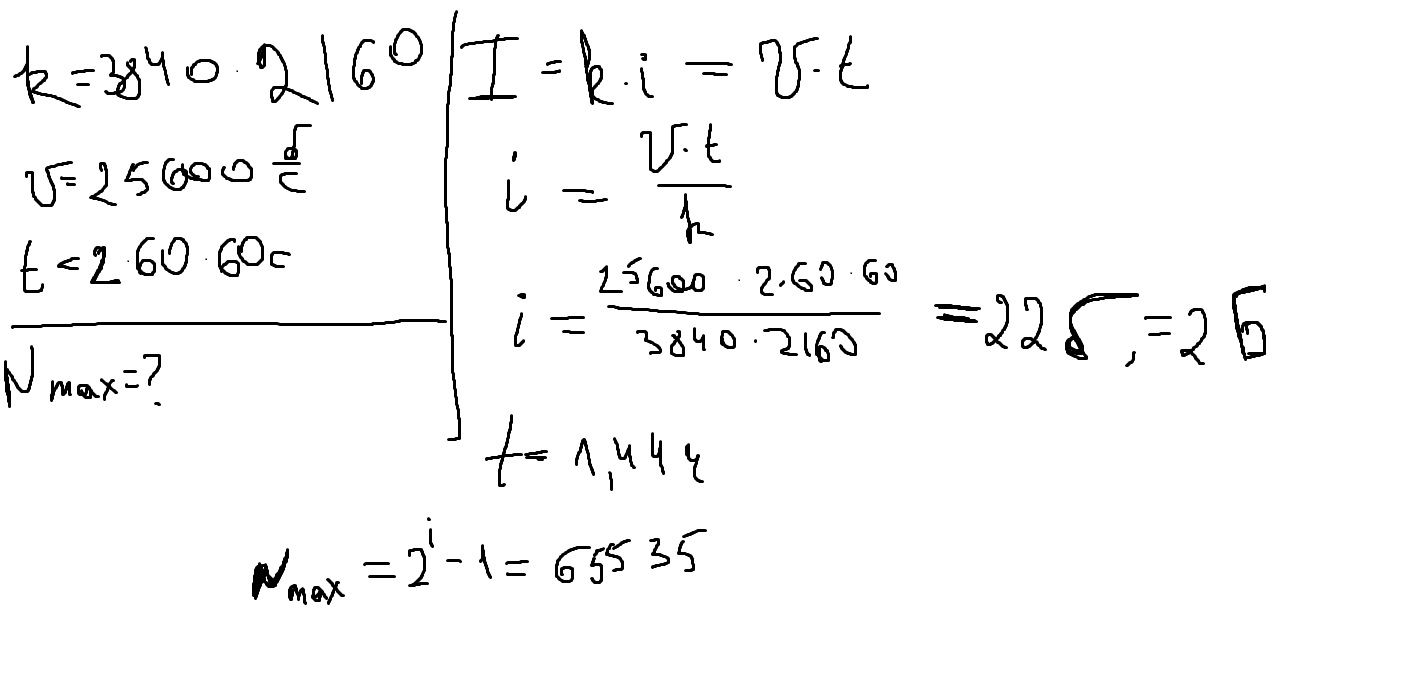 k = 3840 · 2160
v = 25600 б/с
t < 2 · 60 · 60 с
N max = ?
I = k · i = v · t
i = v · t / k
i = 25600 · 2 · 60 · 60 / 3840 · 2160 = 22 б, = 2 Б
t = 1,444
N max = 2^i - 1 = 65535